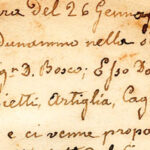 ra del 26 Genna
dunammo nella
g.r D. Bosco; Esso Do
ietti, Artiglia, Cag
e ci venne propo